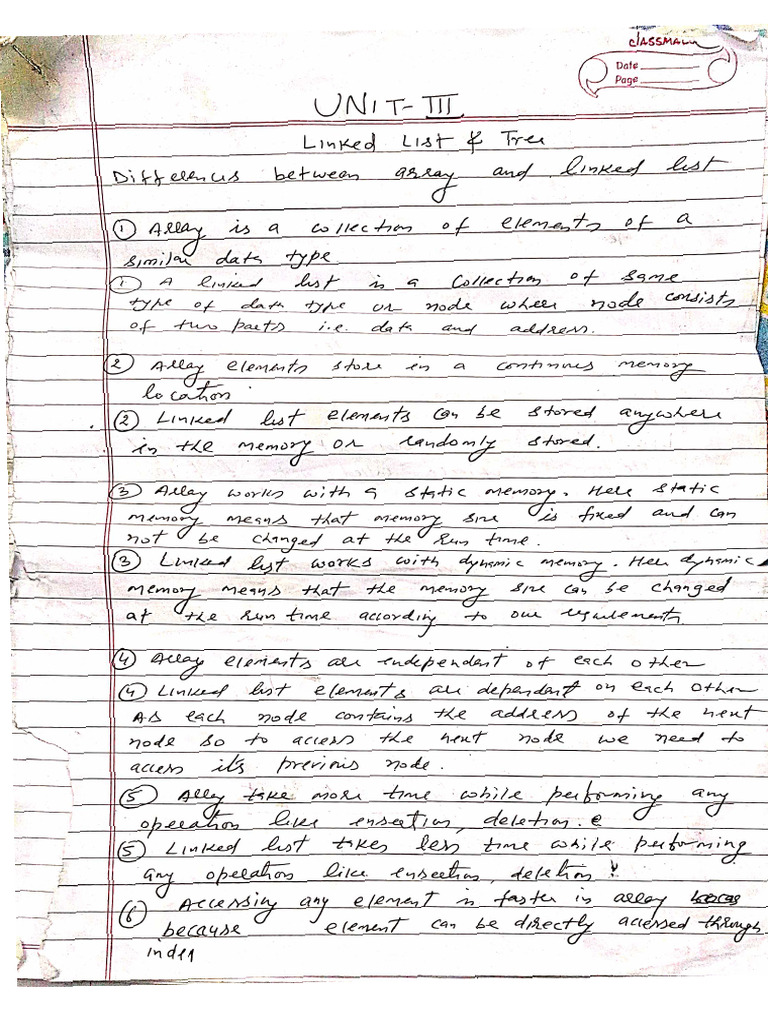 classmate
Date
Page
UNIT-III
Linked List & Tree
Differences between array and linked list
① Array is a collection of elements of a
similar data type
① A linked list is a collection of same
type of data type or node where node consists
of two parts i.e. data and address.
② Array elements store in a continues memory
location
② Linked list elements can be stored anywhere
in the memory or randomly stored.
③ Array works with a static memory. Here static
memory means that memory size is fixed and can
not be changed at the run time.
③ Linked list works with dynamic memory. Here dynamic
memory means that the memory size can be changed
at the run time according to our requirements
④ Array elements are independent of each other
④ Linked list elements are dependant on each other
As each node contains the address of the next
node so to access the next node we need to
access it's previous node.
⑤ Array take more time while performing any
operation like insertion, deletion.
⑤ Linked list takes less time while performing
any operation like insertion, deletion
⑥ Accessing any element is faster in array
because element can be directly accessed through
index